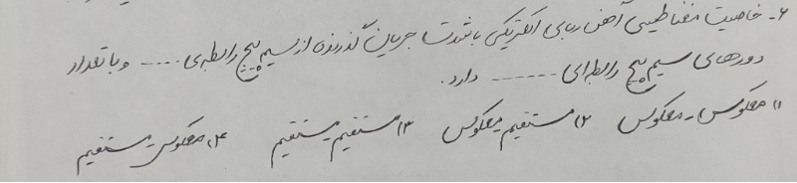 ۶- خاصیت مغناطیسی آهن ربای الکتریکی باشدت جریان گذرنده از سیم پیچ رابطه‌ی ..... و با تعداد
دورهای سیم پیچ رابطه‌ای ....... دارد.
۱) معکوس - معکوس ۲) مستقیم - معکوس ۳) مستقیم - مستقیم ۴) معکوس - مستقیم